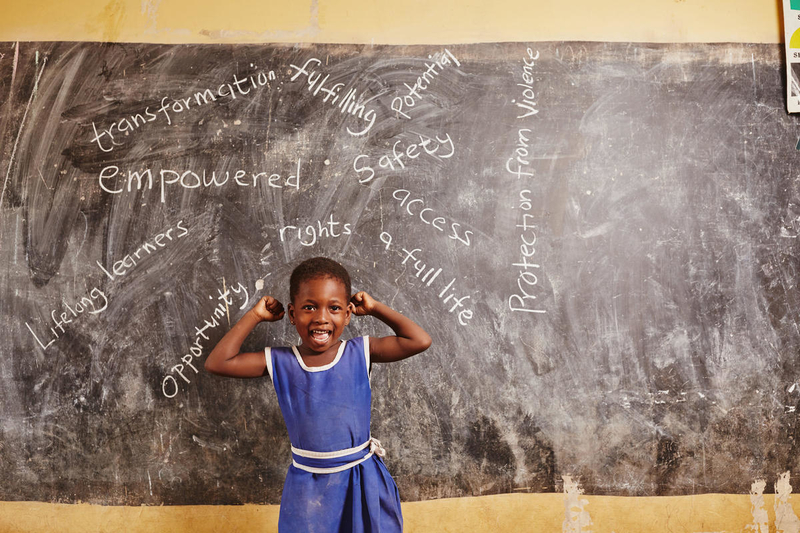 transformation
fulfilling
Potential
Protection from Violence
Empowered
Safety
access
rights
a full life
Lifelong learners
Opportunity